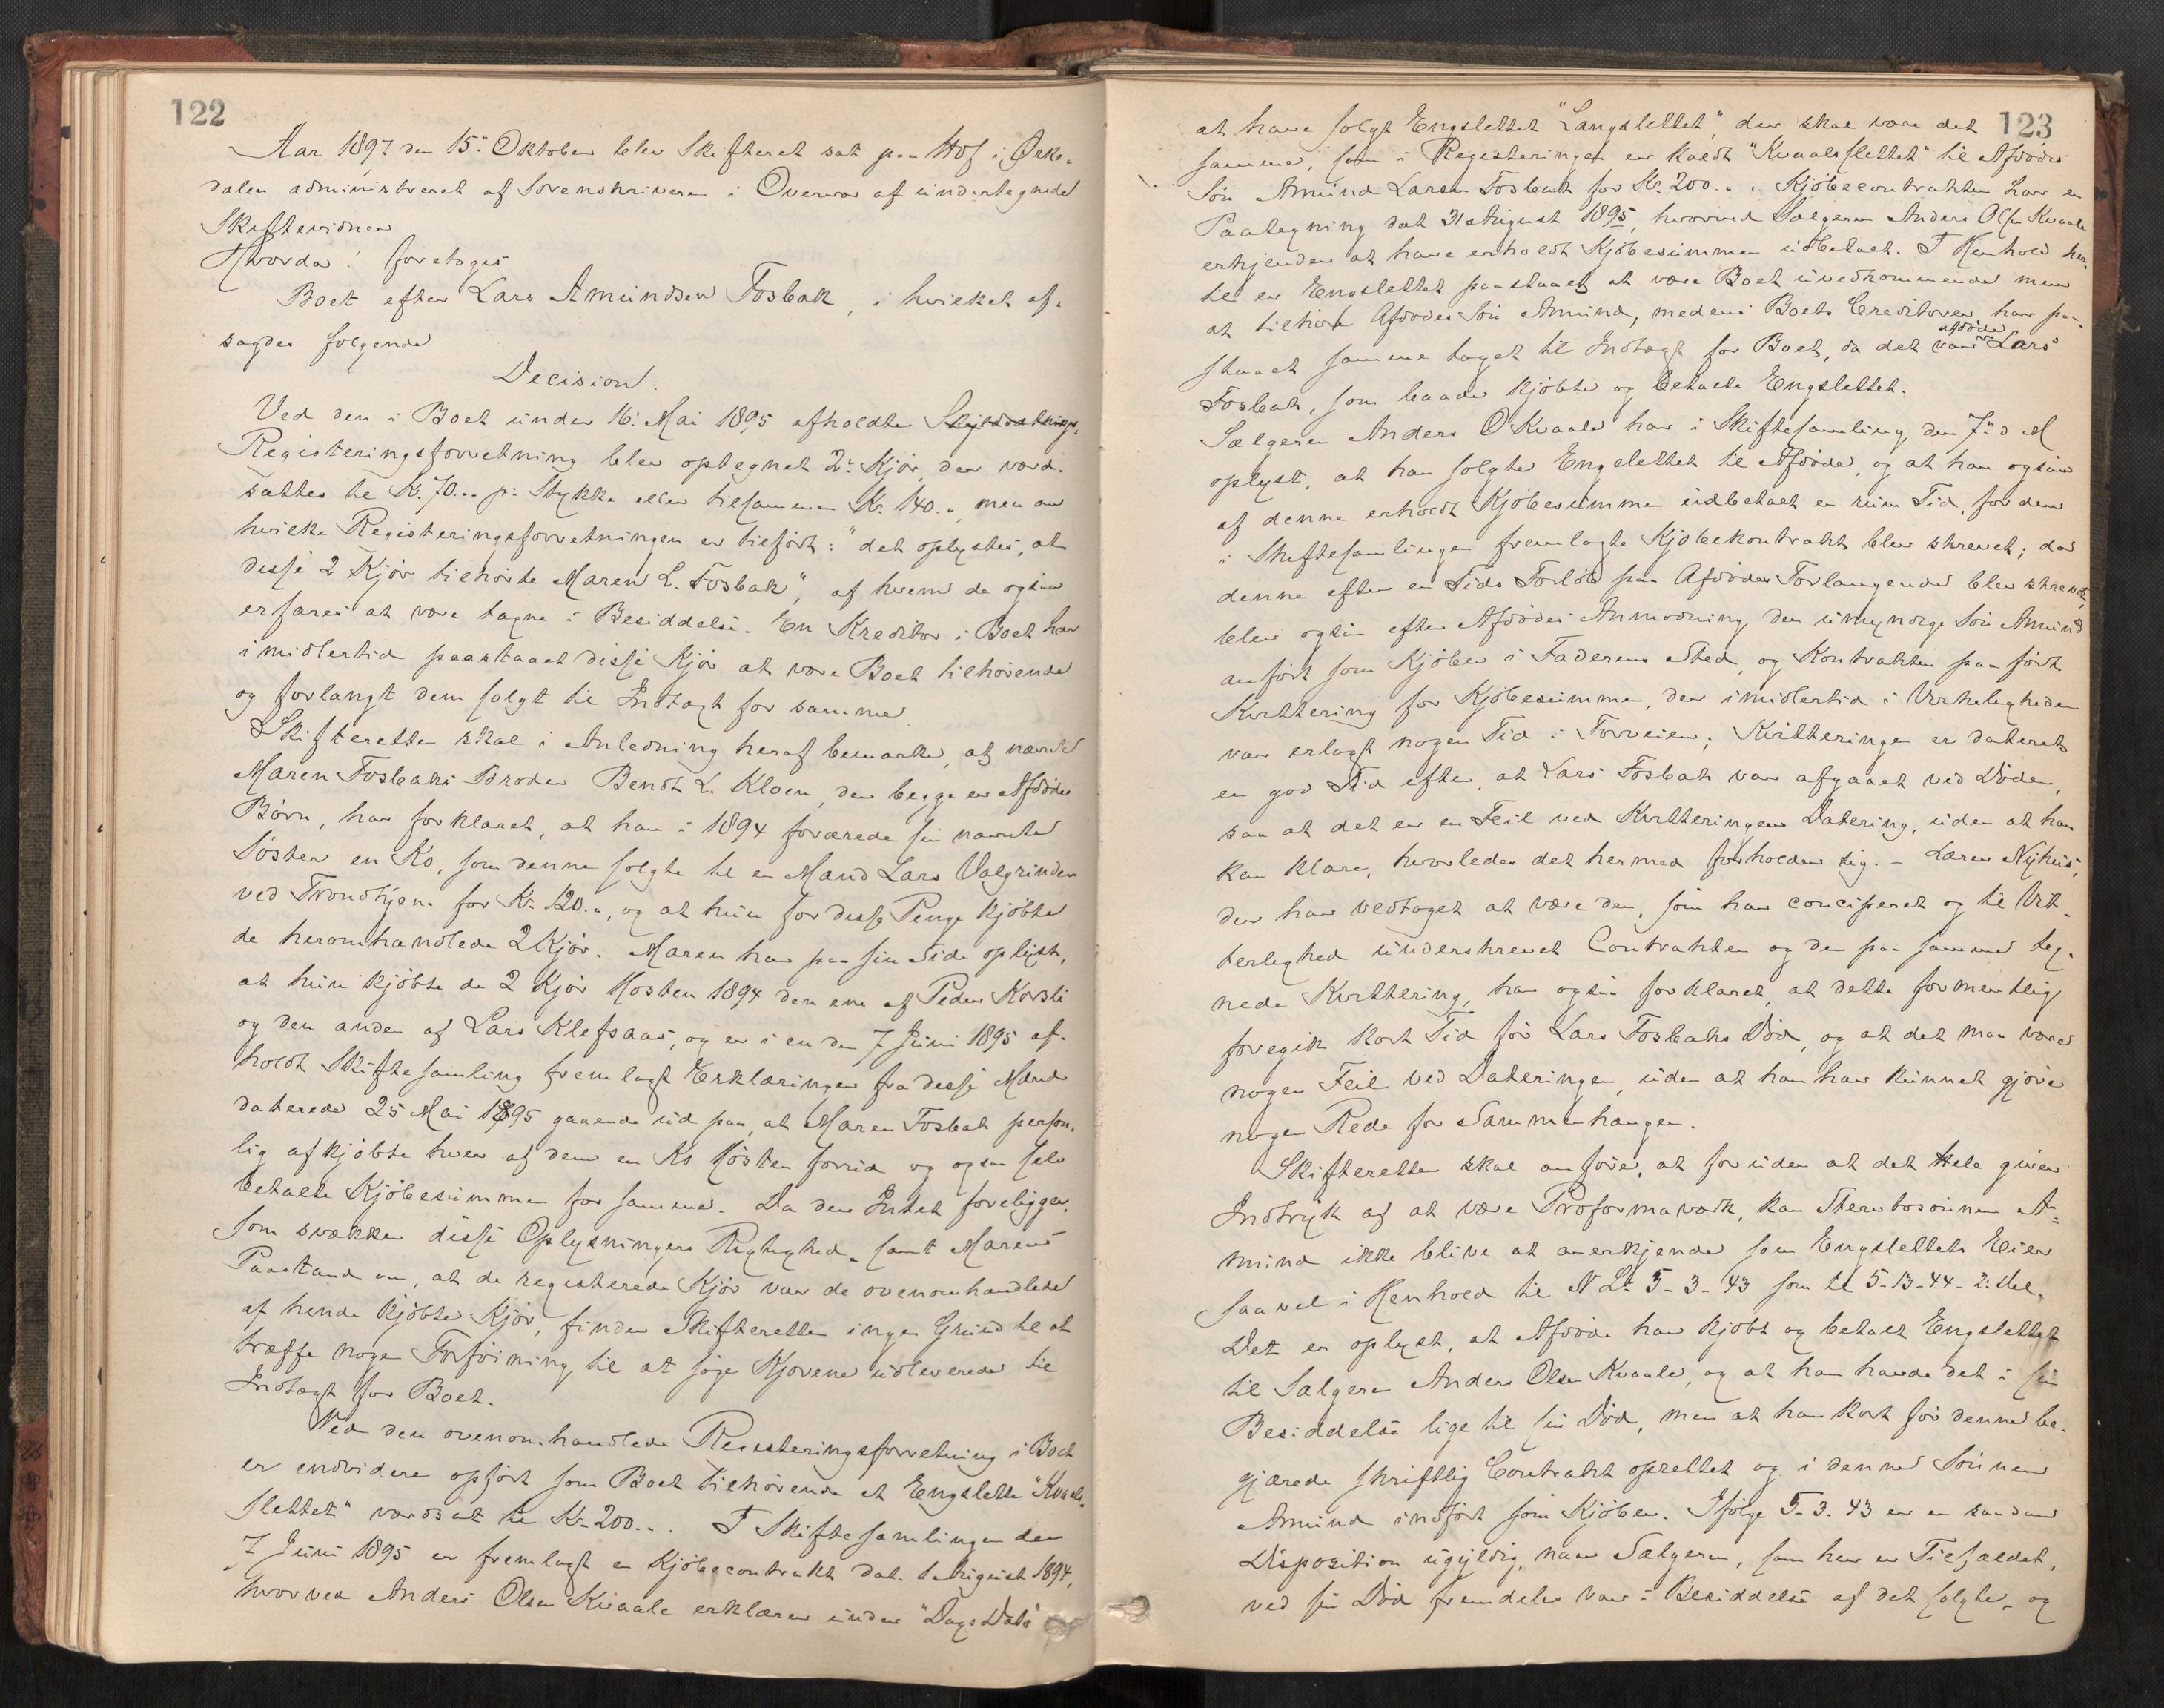 122
Aar 1897 den 15de Oktober blev Skifteret sat paa Hof i Orke-
dalen administreret af Sorenskriveren i Overvær af undertegnede
Skiftevidner
Hvorda! foretoges
Boet efter Lars Amundsen Fosbak, i hvilket af-
sagdes følgende
Decision:
Ved den i Boet under 16. Mai 1895 afholdte
Registeringsforretning blev optegnet 2de Kjør, der værd-
sattes til Kr. 70.. pr. Stykke eller tilsammen Kr. 140.., men om
hvilke Registeringsforretningen er tilført: "det oplystes, at
disse 2 Kjør tilhørte Maren L. Fosbak", af hvem de ogsaa
erfares at være tagne i Besiddelse. En Kreditor i Boet har
imidlertid paastaaet disse Kjør at være Boet tilhørende
og forlangt dem solgt til Indtægt for samme.
Skifteretten skal i Anledning heraf bemærke, at nævnte
Maren Fosbaks Broder Bendt L. Kloen, der begge er Afdødes
Børn, har forklaret, at han i 1894 forærede sin nævnte
Søster en Ko, som denne solgte til en Mand Lars Valgrinden
ved Trondhjem for Kr. 120.., og at hun for disse Penge kjøbte
de heromhandlede 2 Kjør. Maren har paa sin Side oplyst,
at hun kjøbte de 2 Kjør Høsten 1894 den ene af Peder Korsli
og den anden af Lars Klefsaas, og er i en den 7 Juni 1895 af-
holdt Skiftesamling fremlagt Erklæringer fra disse Mænd
daterede 25 Mai 1895 gaaende ud paa, at Maren Fosbak person-
lig afkjøbte hver af dem en Ko Høsten forud og ogsaa selv
betalte Kjøbesummen for samme. Da der Intet foreligger,
som svækker disse Oplysningers Rigtighed, samt Marens
Paastand om, at de registerede Kjør var de ovenomhandlede
af hende kjøbte Kjør, finder Skifteretten ingen Grund til at
træffe nogen Forføining til at søge Kjørene udleverede til
Indtægt for Boet.
Ved den ovenomhandlede Registeringsforretning i Boet
er endvidere opført som Boet tilhørende et Engslette "Kvaals-
slettet" værdsat til Kr. 200... I Skiftesamlingen den
7 Juni 1895 er fremlagt en Kjøbecontrakt dat. 1 August 1894,
hvorved Anders Olsen Kvaale erklærer under "Dags Dato"
123
at have solgt Engslettet "Langslettet", der skal være det
samme, som i Registeringen er kaldt "Kvaalsslettet" til Afdødes
Søn Amund Larsen Fosbak for Kr. 200... Kjøbecontrakten har en
Paategning dat 31 August 1895, hvorved Sælgeren Anders Olsen Kvaale
erkjender at have erholdt Kjøbesummen udbetalt. I Henhold her-
til er Engslettet paastaaet at være Boet uvedkommende men
at tilhøre Afdødes Søn Amund, medens Boets Creditorer har paa-
staaet samme taget til Indtægt for Boet, da det var afdøde Lars
Fosbak, som baade kjøbte og betalte Engslettet.
Sælgeren Anders O Kvaale har i Skiftesamling den 7de d M
oplyst, at han solgte Engslettet til Afdøde, og at han ogsaa
af denne erholdt Kjøbesummen udbetalt en rum Tid, før den
i Skiftesamlingen fremlagte Kjøbekontrakt blev skrevet; da
denne efter en Tids Forløb paa Afdødes Forlangende blev skrevet,
blev ogsaa efter Afdødes Anmodning den umyndige Søn Amund
anført som Kjøber i Faderens Sted, og Kontrakten paaført
Kvittering for Kjøbesummen, der imidlertid i Virkeligheden
var erlagt nogen Tid i Forveien; Kvitteringen er dateret
en god Tid efter, at Lars Fosbak var afgaaet ved Døden,
saa at det er en Feil ved Kvitteringens Datering, uden at han
kan klare, hvorledes det hermed forholder sig. – Lærer Nyhus,
der har vedtaget at være den, som har conciperet og til Vit-
terlighed underskrevet Contrakten og den paa samme teg-
nede Kvittering, har ogsaa forklaret, at dette formentlig
foregik kort Tid før Lars Fosbaks Død, og at det maa være
nogen Feil ved Dateringen, uden at han har kunnet gjøre
nogen Rede for Sammenhængen.
Skifteretten skal anføre, at foruden at det Hele giver
Indtryk af at være Proformaværk, kan Sterbosønnen A-
mund ikke blive at anerkjende som Engslettets Eier
saavel i Henhold til N L. 5-3-43 som til 5-13-44-2. Led.
Det er oplyst, at Afdøde har kjøbt og betalt Engslettet
til Sælgeren Anders Olsen Kvaale, og at han havde det i sin
Besiddelse lige til sin Død, men at han kort før denne be-
gjærede skriftlig Contrakt oprettet og i denne Sønnen
Amund indført som Kjøber. Ifølge 5-3-43 er en saadan
Disposition ugyldig, naar Sælgeren, som her er Tilfældet,
ved sin Død fremdeles var i Besiddelse af det solgte, og